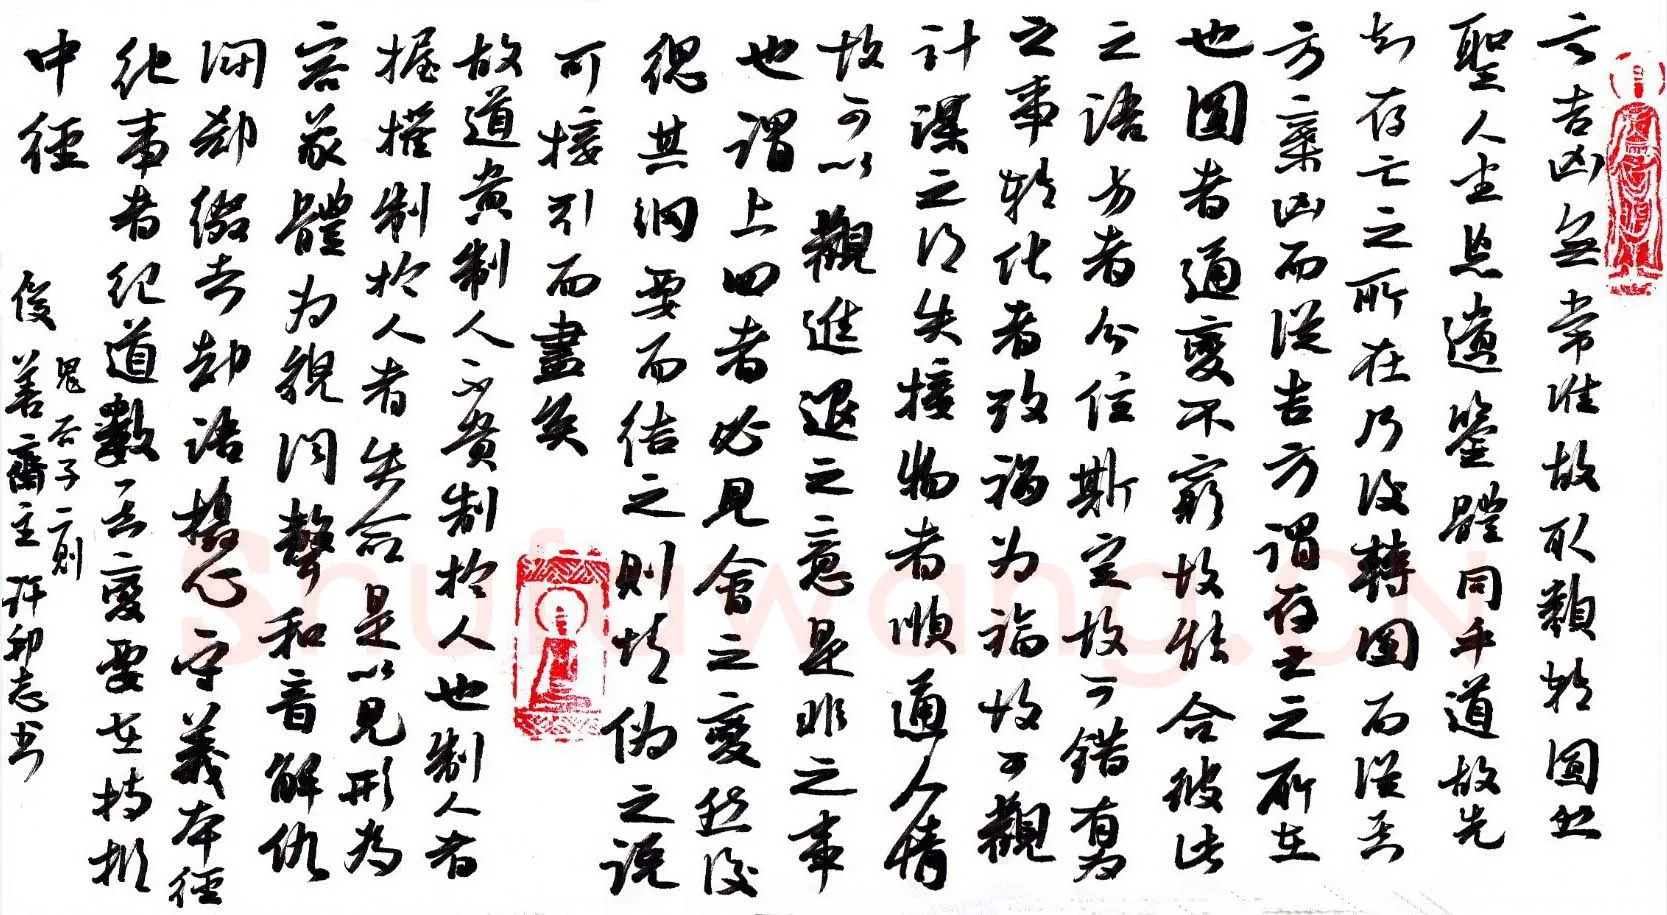 言吉凶無常准故取類轉圓然
聖人坐忘遺鑒體同乎道故先
知存亡之所在乃後轉圓而從其
方棄凶而從吉方謂存亡之所在
也圓者通變不窮故能合彼此
之語方者分位斯定故可錯有為
之事轉化者改禍為福故可觀
計謀之得失接物者順通人情
故可以觀進退之意是非之事
也謂上四者必見會之變然後
總其綱要而結之則情偽之說
可接引而盡矣
故道貴制人不貴制於人也制人者
握權制於人者失命是以見形為
容象體為貌聞聲和音解仇
鬥郄綴去卻語攝心守義本徑
紀事者紀道數其變要在持樞
中徑
鬼谷子二則
善齋主許卯志書
Shufawang.CN